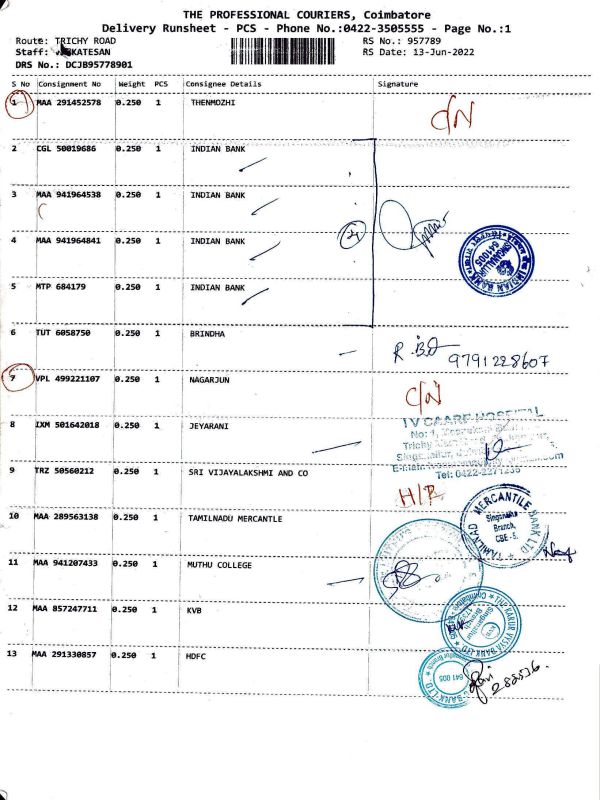 THE PROFESSIONAL COURIERS, Coimbatore
Delivery Runsheet - PCS - Phone No.:0422-3505555 - Page No.:1
Route: TRICHY ROAD RS No.: 957789
Staff: RS Date: 13-Jun-2022
DRS No.: DCJB95778901
S No Consignment No Weight PCS Consignee Details Signature
1 MAA 291452578 0.250 1 THENMOZHI C/N
2 CGL 50019686 0.250 1 INDIAN BANK
3 MAA 941964538 0.250 1 INDIAN BANK
4 MAA 941964841 0.250 1 INDIAN BANK
INDIAN BANK
641005
5 MTP 684179 0.250 1 INDIAN BANK
6 TUT 6058750 0.250 1 BRINDHA
9791228607
7 VPL 499221107 0.250 1 NAGARJUN C/N
8 IXM 501642018 0.250 1 JEYARANI
No: 1,
Trichy
Tel: 0422-2271235
9 TRZ 50560212 0.250 1 SRI VIJAYALAKSHMI AND CO
10 MAA 289563138 0.250 1 TAMILNADU MERCANTILE
TAMILNAD MERCANTILE BANK LTD
Branch,
CBE -5.
11 MAA 941207433 0.250 1 MUTHU COLLEGE
12 MAA 857247711 0.250 1 KVB
THE KARUR VYSYA BANK LTD
Branch
KVB
13 MAA 291330857 0.250 1 HDFC
BANK LTD.
641 005